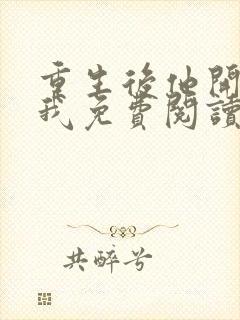 重生後他開
我免費閱讀
共醉兮